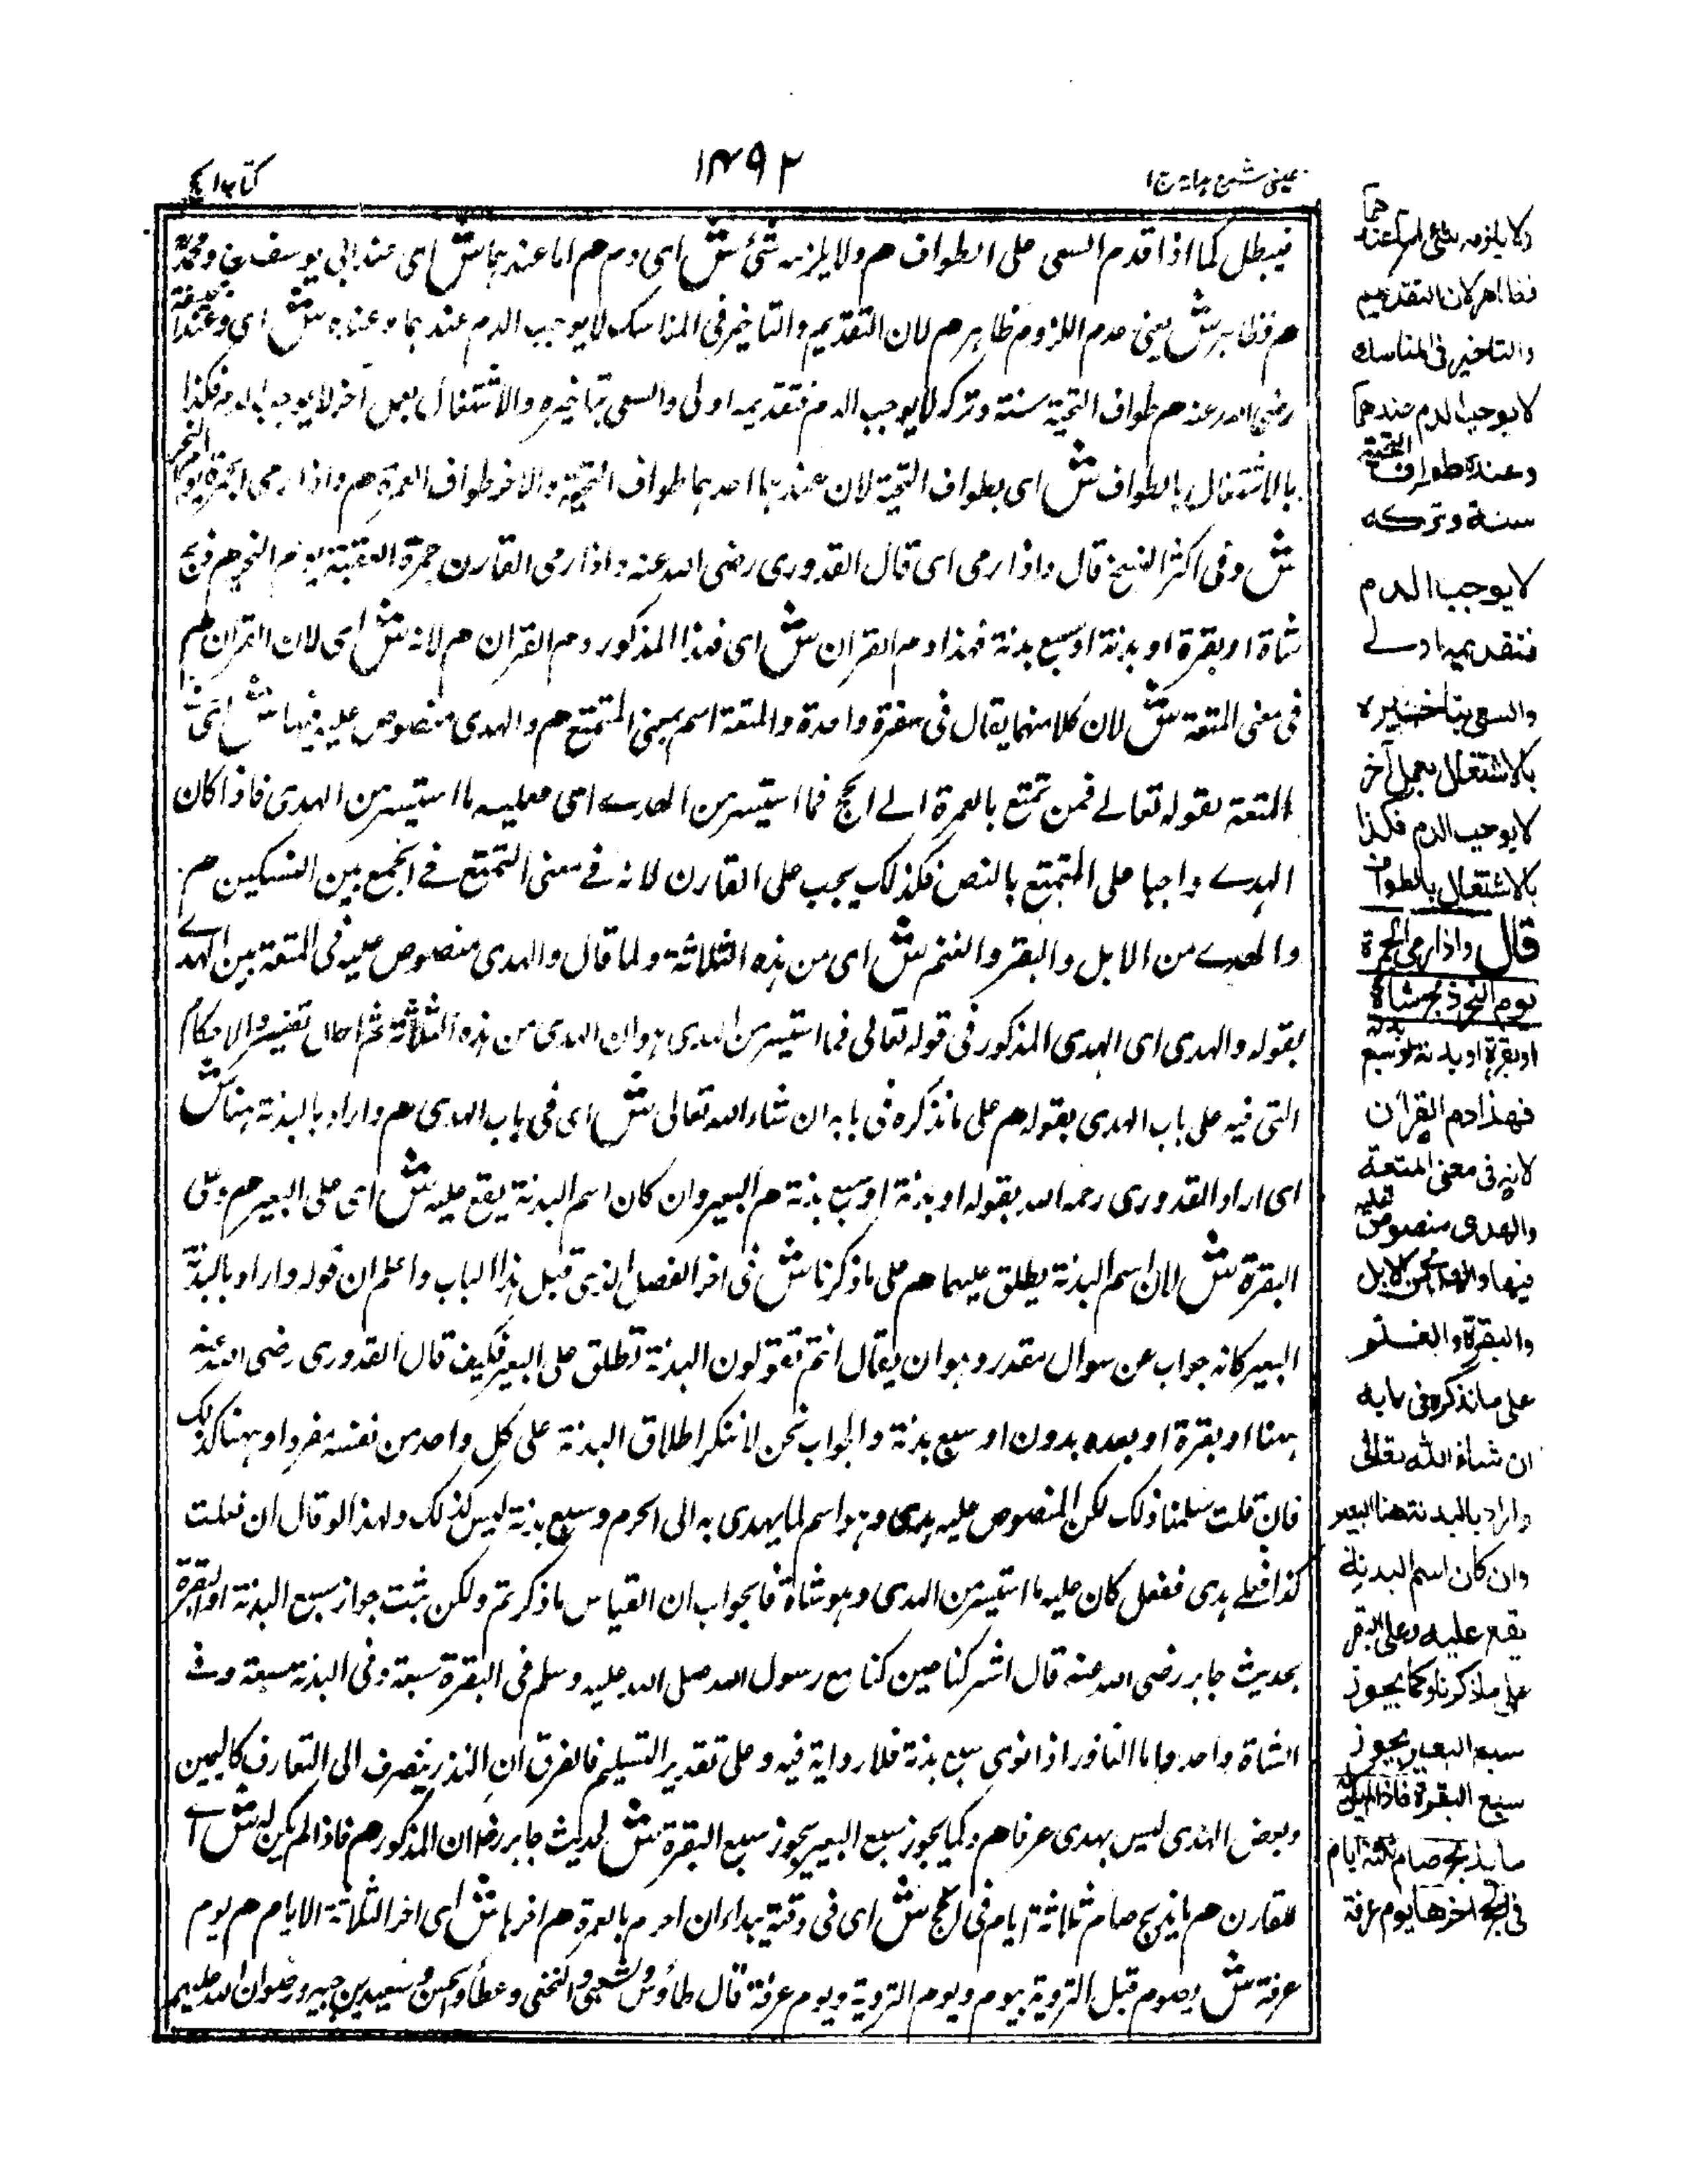 عینی شرح هدایة ج ١
١٣٩٢
کتاب الحج
فیبطل کما اذا قدم السعی علی الطواف هم ولا یلزمه شئ ش ای دم هم اما عندهما ش ای عند ابی یوسف رح ومحمد رح
هم فظاهر ش یعنی عدم اللزوم ظاهر هم لان التقدیم والتاخیر فی المناسک لا یوجب الدم عندهما وعنده ش ای وعند ابی حنیفة
رضی الله عنه هم طواف التحیة سنة وترکه لا یوجب الدم فتقدیمه اولی والسعی بتاخیره والاشتغال بعمل آخر لا یوجب الدم فکذا
بالاشتغال بالطواف ش ای بطواف التحیة لان عندهما احدهما طواف التحیة والاخر طواف العمرة هم واذا رمی الجمرة یوم النحر
ش وفی اکثر النسخ قال واذا رمی ای قال القدوری رضی الله عنه واذا رمی القارن جمرة العقبة یوم النحر هم ذبح
شاة او بقرة او بدنة او سبع بدنة فهذا دم القران ش ای فهذا المذکور دم القران هم لانه ش ای لان القران هم
فی معنی المتعة ش لان کلا منهما یقال فی سفرة واحدة والمتعة اسم بمعنی التمتع هم والهدی منصوص علیه فیها ش ای فی
المتعة بقوله تعالے فمن تمتع بالعمرة الے الحج فما استیسر من الهدے ای فعلیه ما استیسر من الهدی فاذا کان
الهدے واجبا علی المتمتع بالنص فکذلک یجب علی القارن لانه فے معنی التمتع فے الجمع بین النسکین هم
والهدے من الابل والبقر والغنم ش ای من هذه الثلاثة ولما قال والهدی منصوص علیه فی المتعة بین الهدے
بقوله والهدی ای الهدی المذکور فی قوله تعالی فما استیسر من الهدی هو ان الهدی من هذه الثلاثة ثم احال تفسیر الاحکام
التی فیه علی باب الهدی بقوله هم علی ما نذکره فی بابه ان شاء الله تعالی ش ای فی باب الهدی هم واراد بالبدنة هنا ش
ای اراد القدوری رحمه الله بقوله او بدنة او سبع بدنة هم البعیر وان کان اسم البدنة یقع علیه ش ای علی البعیر هم وعلی
البقرة ش لان اسم البدنة یطلق علیهما هم علی ما ذکرنا ش فی اخر الفصل الذی قبل هذا الباب واعلم ان قوله واراد بالبدنة
البعیر کانه جواب عن سوال مقدر وهو ان یقال انتم تقولون البدنة تطلق علی البعیر فکیف قال القدوری رضی الله عنه
ههنا او بقرة او بعده بدون او سبع بدنة والجواب نحن لا ننکر اطلاق البدنة علی کل واحد من نفسه مفردا وههنا کذلک
فان قلت سلمنا ذلک لکن المنصوص علیه هدی وهو اسم لما یهدی به الی الحرم وسبع بدنة لیس کذلک ولهذا لو قال ان فعلت
کذا فعلے هدی ففعل کان علیه ما استیسر من الهدی وهو شاة فالجواب ان القیاس ما ذکرتم ولکن ثبت جواز سبع البدنة او البقرة
بحدیث جابر رضی الله عنه قال اشترکنا حین کنا مع رسول الله صلی الله علیه وسلم فی البقرة سبعة وفی البدنة سبعة وفی
الشاة واحد واما الناذر اذا نوی سبع بدنة فلا روایة فیه وعلی تقدیر التسلیم فالفرق ان النذر ینصرف الی المتعارف کالیمین
وبعض الهدی لیس بهدی عرفا هم وکما یجوز سبع البعیر یجوز سبع البقرة ش لحدیث جابر رض المذکور هم فاذا لم یکن له ش اے
للقارن هم ما یذبح صام ثلاثة ایام فی الحج ش ای فی وقته بعد ان احرم بالعمرة هم اخرها ش ای اخر الثلاثة الایام هم یوم
عرفة ش ویصوم قبل الترویة بیوم ویوم الترویة ویوم عرفة قال طاؤس والشعبی والنخعی وعطاء والحسن وسعید بن جبیر رضوان الله علیهم
ولا یلزمه شئ اما عندهما
فظاهر لان التقدیم
والتاخیر فی المناسک
لا یوجب الدم عندهما
وعنده طواف التحیة
سنة وترکه
لا یوجب الدم
فتقدیمه اولے
والسعی بتاخیره
بالاشتغال بعمل آخر
لا یوجب الدم فکذا
بالاشتغال بالطواف
قال واذا رمی الجمرة
یوم النحر ذبح شاة
او بقرة او بدنة او سبع بدنة
فهذا دم القران
لانه فی معنی المتعة
والهدی منصوص علیه
فیها والهدی من الابل
والبقرة والغنم
علی ما نذکره فی بابه
ان شاء الله تعالی
واراد بالبدنة هنا البعیر
وان کان اسم البدنة
یقع علیه وعلی البقر
علی ما ذکرنا وکما یجوز
سبع البعیر یجوز
سبع البقرة فاذا لم یکن له
ما یذبح صام ثلثة ایام
فی الحج اخرها یوم عرفة